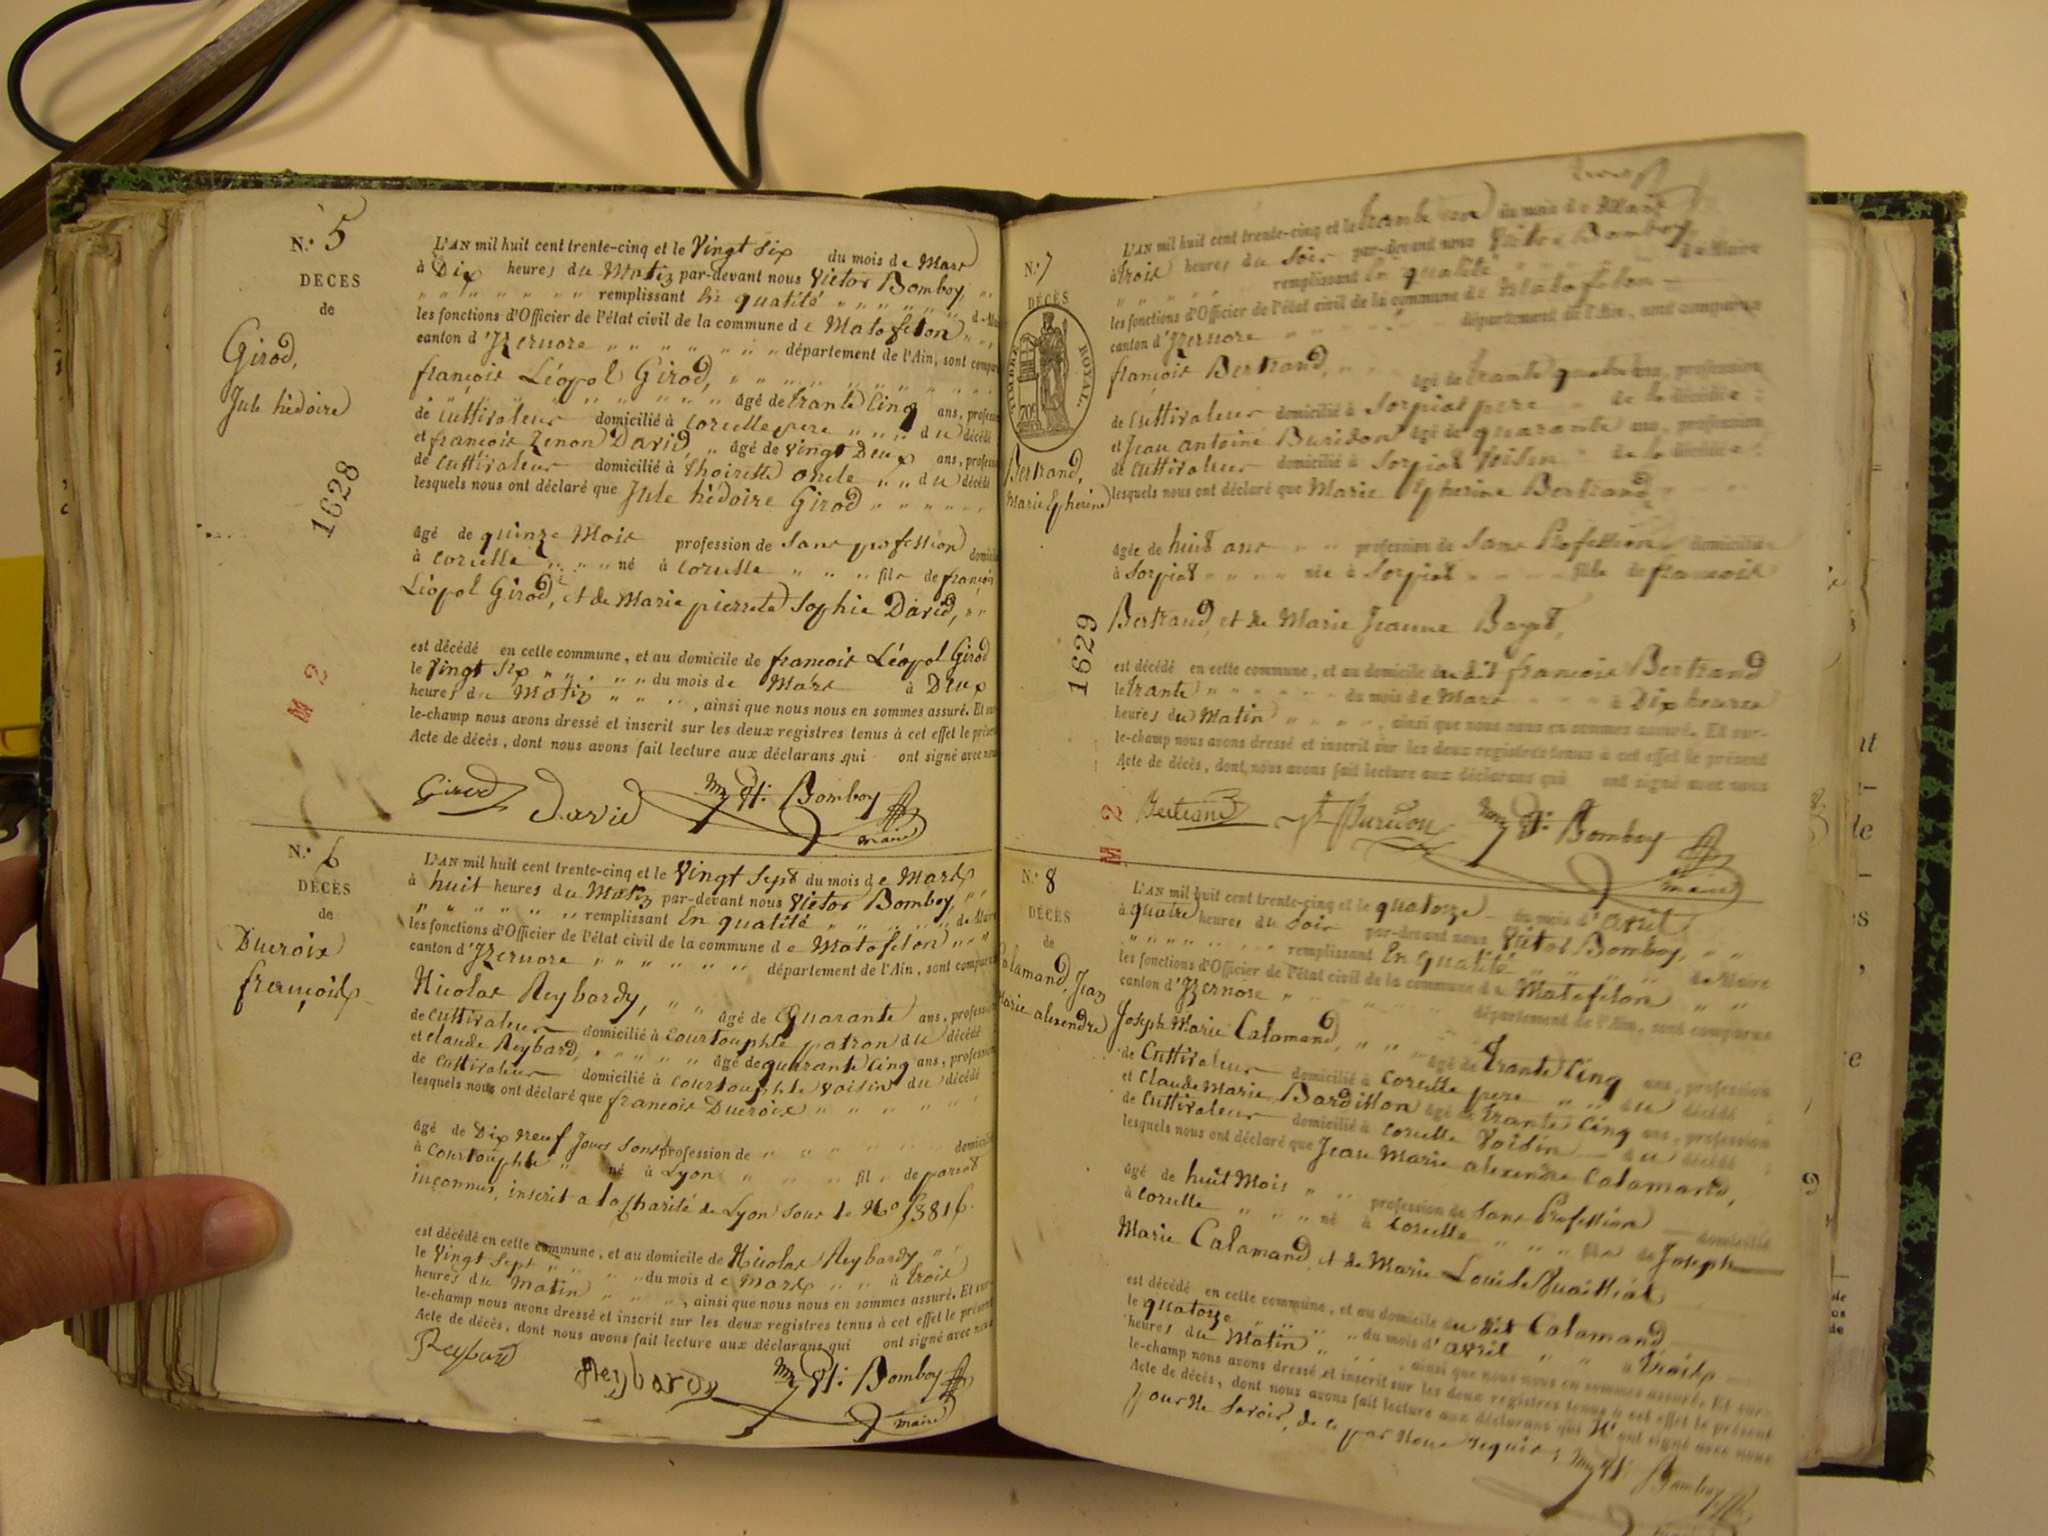 N.° 5
DECES
de
Girod,
Jule hèdoire
1628
M 2
L'AN mil huit cent trente-cinq et le Vingt Six du mois de Mars
à Dix heures du Matin par-devant nous Victor Bomboy,
remplissant En qualité
les fonctions d'Officier de l'état civil de la commune de Matafelon
canton d'Izernore département de l'Ain, sont
françois Léopol Girod,
âgé de trante Cinq ans,
de Cultivateur domicilié à Corcelle pere du décédé
et françois Zenon David âgé de vingt Deux ans,
de Cultivateur domicilié à Thoirette oncle du décédé
lesquels nous ont déclaré que Jule hèdoire Girod
âgé de quinze Mois profession de Sans profession
à Corcelle né à Corcelle fils de françois
Léopol Girod, et de Marie pierrete Sophie David,
est décédé en cette commune, et au domicile de françois Léopol Girod
le Vingt Six du mois de Mars à Deux
heures du Matin, ainsi que nous nous en sommes assuré. Et sur-
le-champ nous avons dressé et inscrit sur les deux registres tenus à cet effet le
Acte de décès, dont nous avons fait lecture aux déclarans qui ont signé avec nous
Girod David Bomboy
maire
N.° 6
DÉCÈS
de
Ducroix
françois
L'AN mil huit cent trente-cinq et le Vingt Sept du mois de Mars
à huit heures du Matin par-devant nous Victor Bomboy,
remplissant En qualité de Maire
les fonctions d'Officier de l'état civil de la commune de Matafelon
canton d'Izernore département de l'Ain, sont
Nicolas Reybardy, âgé de Quarante ans,
de Cultivateur domicilié à Courtouphle patron du décédé
et Claude Reybard, âgé de quarante Cinq ans,
de Cultivateur domicilié à Courtouphle voisin du décédé
lesquels nous ont déclaré que françois Ducroix
âgé de Dix neuf Jours Sans profession de
à Courtouphle né à Lyon fils de parent
inconnus, inscrit a la Charité de Lyon Sous le No
est décédé en cette commune, et au domicile de Nicolas Reybardy
le Vingt Sept du mois de Mars à trois
heures du Matin, ainsi que nous nous en sommes assuré. Et sur-
le-champ nous avons dressé et inscrit sur les deux registres tenus à cet effet le présent
Acte de décès, dont nous avons fait lecture aux déclarans qui ont signé avec nous
Reybard Reybardy Bomboy
maire
N.° 7
DÉCÈS
TIMBRE ROYAL
70c
Bertrand,
Marie
1629
M 2
L'AN mil huit cent trente-cinq et le trante un du mois de Mars
à trois heures du Soir par-devant nous Victor Bomboy,
remplissant En qualité de Maire
les fonctions d'Officier de l'état civil de la commune de Matafelon
canton d'Izernore département de l'Ain, sont comparus
françois Bertrand,
âgé de trante quatre ans, profession
de Cultivateur domicilié à Sorpiat pere de la décédée
et Jean antoine Buridon âgé de quarante ans, profession
de Cultivateur domicilié à Sorpiat Voisin de la décédée
lesquels nous ont déclaré que Marie Epherine Bertrand
âgée de huit ans profession de Sans Profession domiciliée
à Sorpiat née à Sorpiat fille de françois
Bertrand, et de Marie Jeanne
est décédé en cette commune, et au domicile du dit françois Bertrand
le trante du mois de Mars à Dix heures
heures du Matin, ainsi que nous nous en sommes assuré. Et sur-
le-champ nous avons dressé et inscrit sur les deux registres tenus à cet effet le présent
Acte de décès, dont nous avons fait lecture aux déclarans qui ont signé avec nous
Bertrand Buridon Bomboy
maire
N.° 8
DÉCÈS
de
Jean
Marie alexendre
L'AN mil huit cent trente-cinq et le quatorze du mois d'avril
à quatre heures du Soir par-devant nous Victor Bomboy,
remplissant En qualité de Maire
les fonctions d'Officier de l'état civil de la commune de Matafelon
canton d'Izernore département de l'Ain, sont comparus
Joseph Marie Calamand,
âgé de trante Cinq ans, profession
de Cultivateur domicilié à Corcelle pere du décédé
et Claude Marie Bardillon âgé de trante Cinq ans, profession
de Cultivateur domicilié à Corcelle Voisin du décédé
lesquels nous ont déclaré que Jean Marie alexendre Calamand,
âgé de huit Mois profession de Sans Profession domicilié
à Corcelle né à Corcelle fils de Joseph
Marie Calamand, et de Marie Louise
est décédé en cette commune, et au domicile du dit Calamand
le quatorze du mois d'avril à trois
heures du Matin, ainsi que nous nous en sommes assuré. Et sur-
le-champ nous avons dressé et inscrit sur les deux registres tenus à cet effet le présent
Acte de décès, dont nous avons fait lecture aux déclarans qui N'ont signé avec nous
pour Ne Savoir, de ce par Nous requis Bomboy